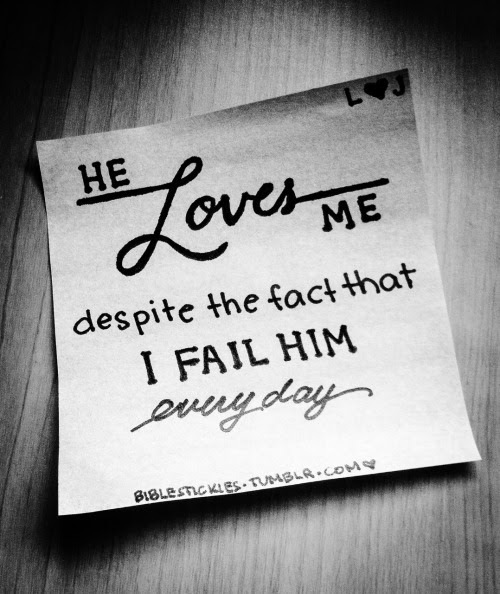 L ♥ J
HE Loves ME
despite the fact that
I FAIL HIM
every day
BIBLESTICKLES.TUMBLR.COM ♥